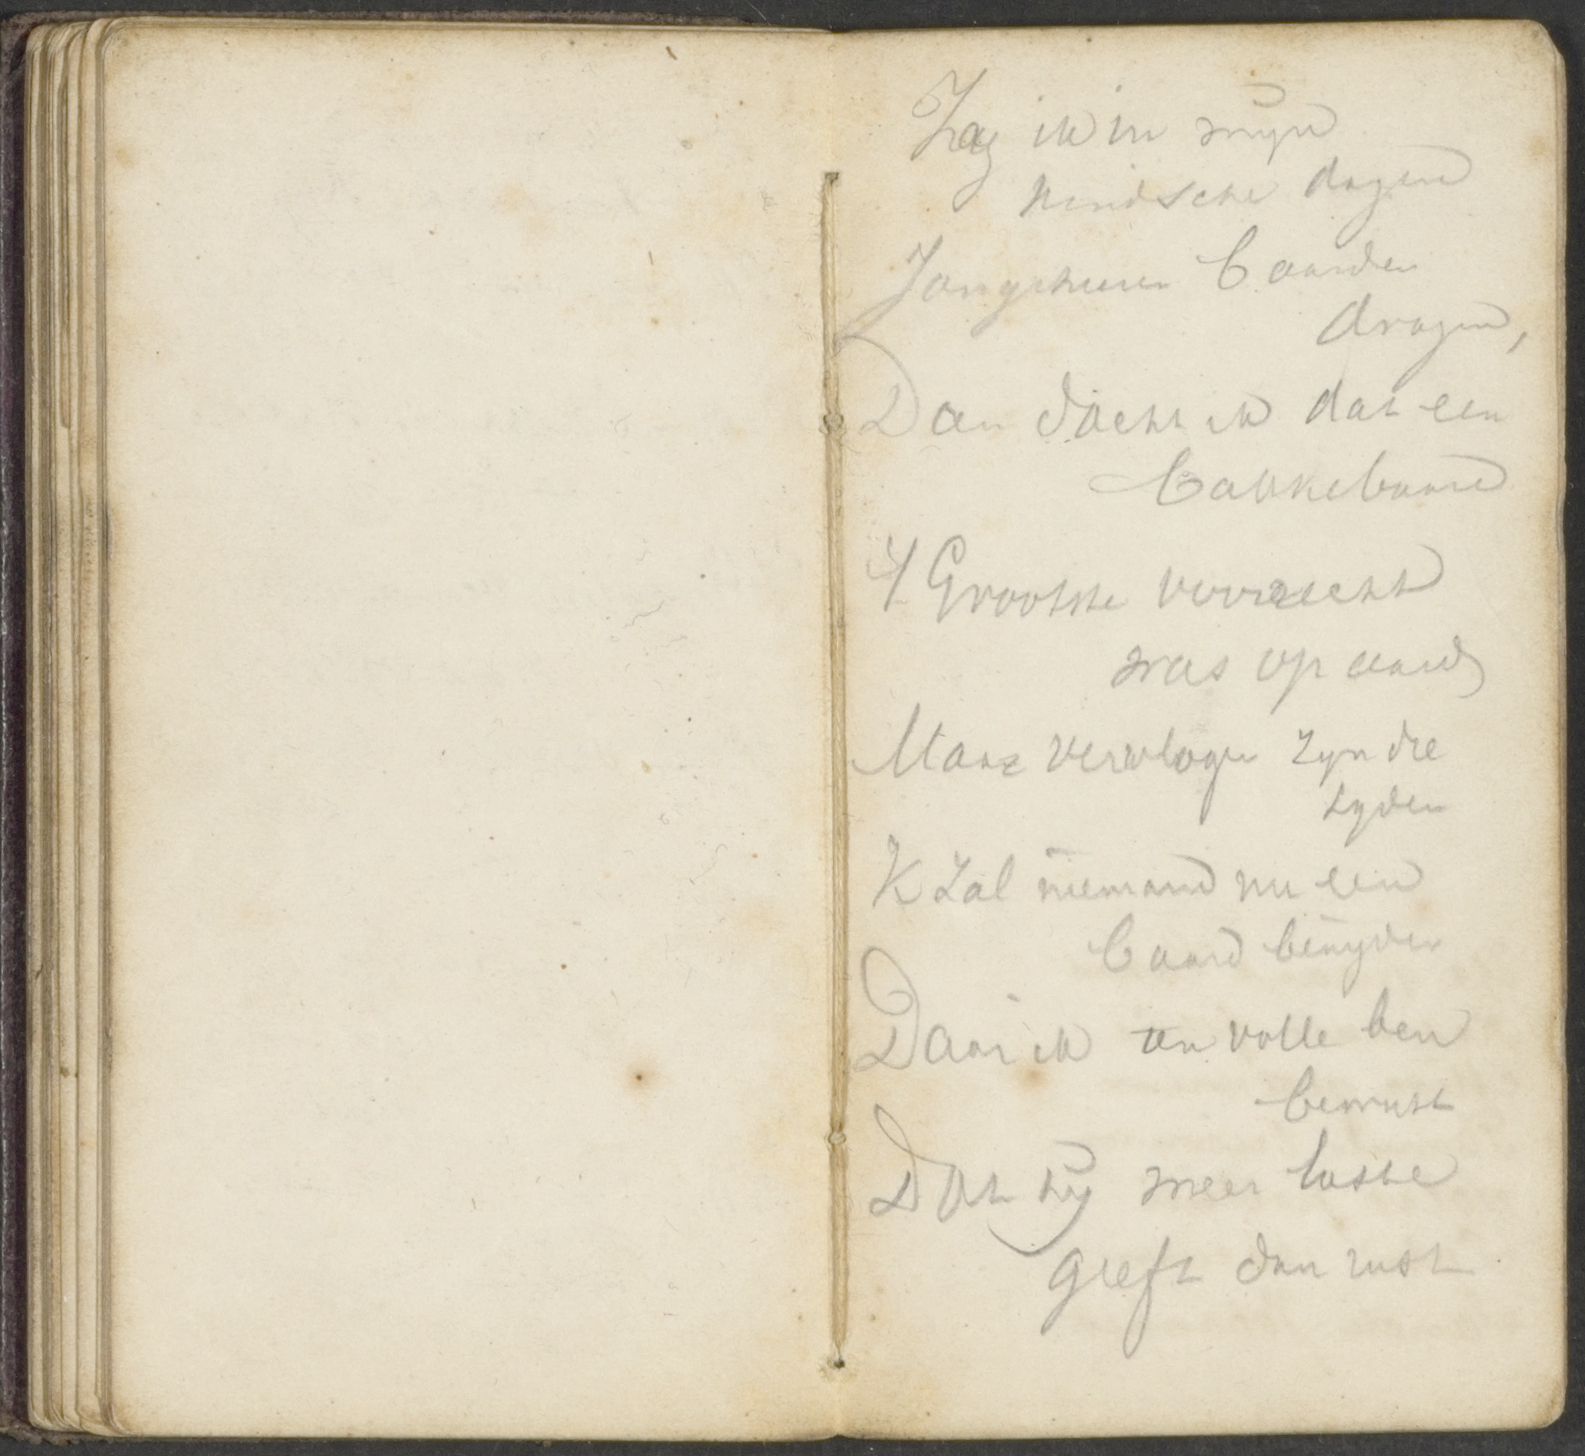 Zag ik in mijn
kindsche dagen
Jongeheeren baarden
dragen,
Dan dacht ik dat een
bakkebaard
'T Grootste voorrecht
was op aard
Maar vervlogen zyn die
tyden
K Zal niemand nu een
baard benyden
Daar ik ten volle ben
bewust
Dat hij meer laste
geeft dan rust